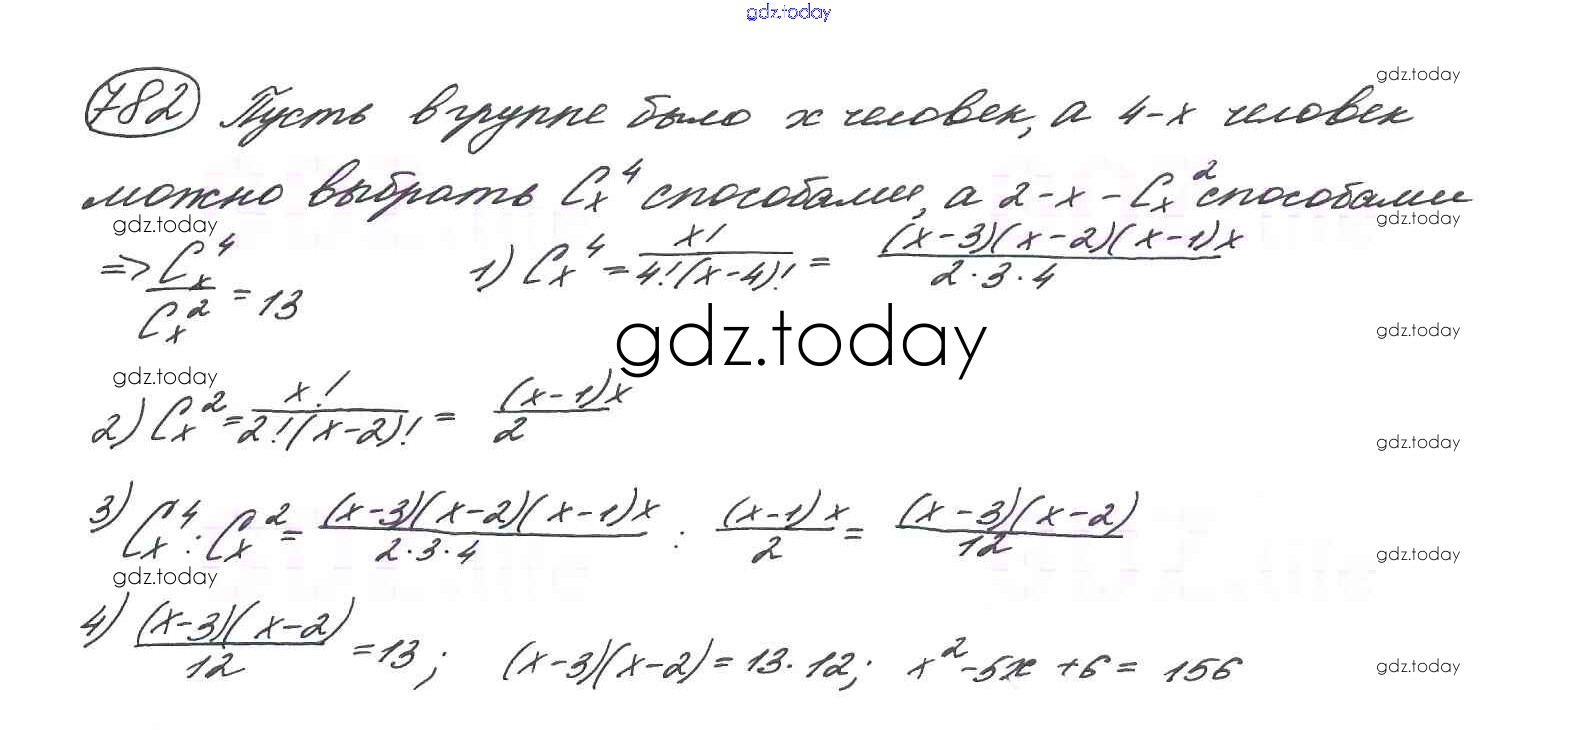 gdz.today
gdz.today
782 Пусть в группе было x человек, а 4-x человек
gdz.today
можно выбрать C_x^4 способами, а 2-x - C_x^2 способами
gdz.today gdz.today
=> C_x^4 / C_x^2 = 13 1) C_x^4 = x! / 4!(x-4)! = (x-3)(x-2)(x-1)x / 2·3·4
gdz.today gdz.today
gdz.today
2) C_x^2 = x! / 2!(x-2)! = (x-1)x / 2
gdz.today
3) C_x^4 : C_x^2 = (x-3)(x-2)(x-1)x / 2·3·4 : (x-1)x / 2 = (x-3)(x-2) / 12
gdz.today gdz.today
4) (x-3)(x-2) / 12 = 13; (x-3)(x-2) = 13·12; x^2 - 5x + 6 = 156
gdz.today